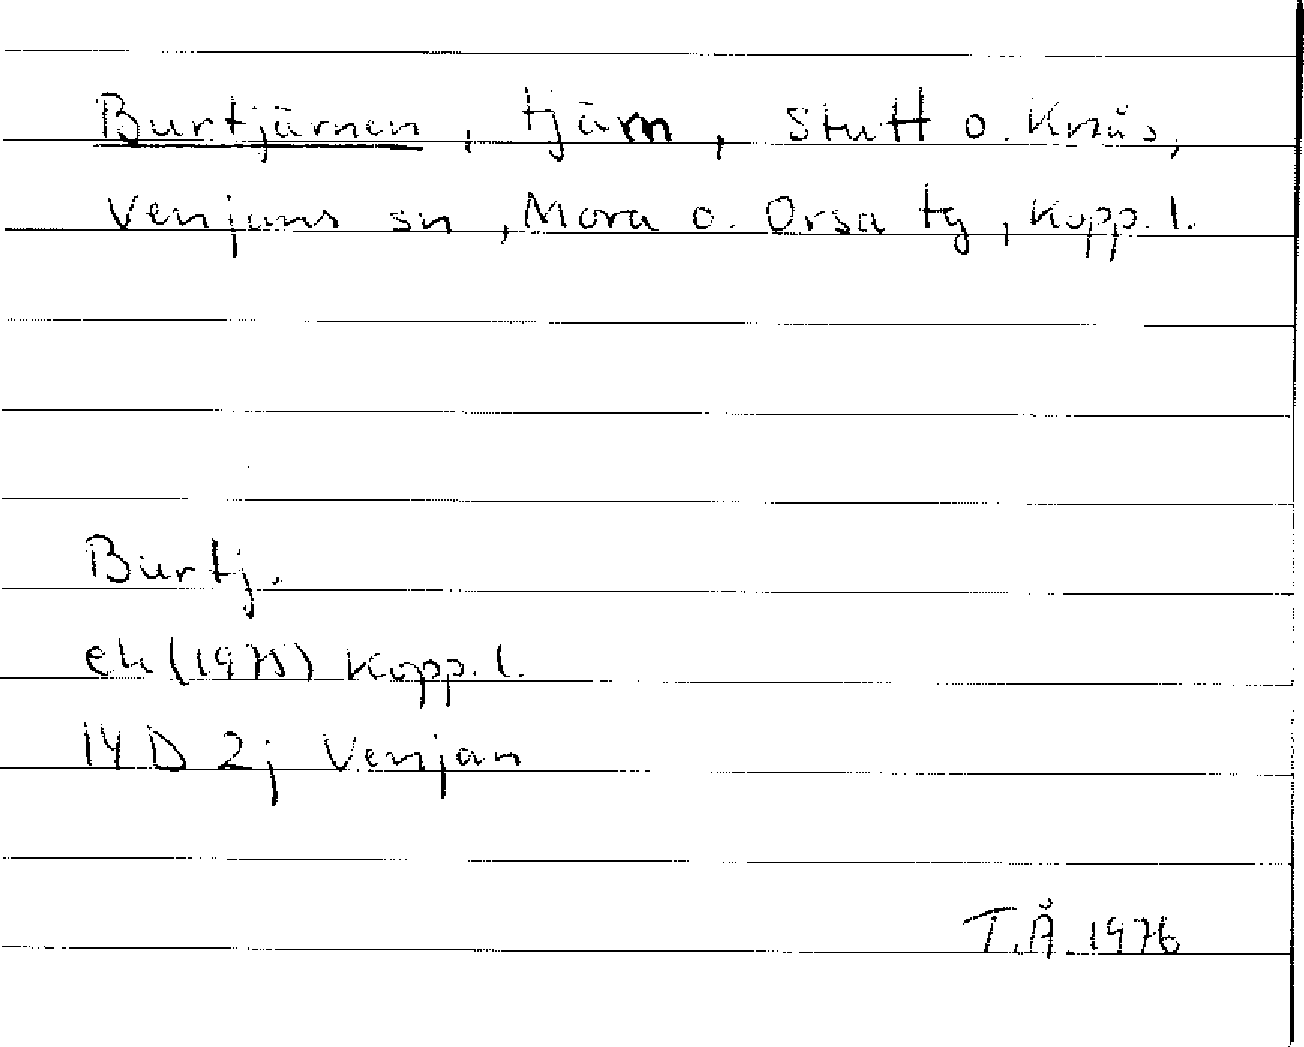 Burtjärnen, tjärn, Stutt o. Knås,
Venjans sn, Mora o. Orsa tg, Kopp. l.
Burtj.
ek (1975) Kopp. l.
14 D 2j Venjan
T.Å. 1976